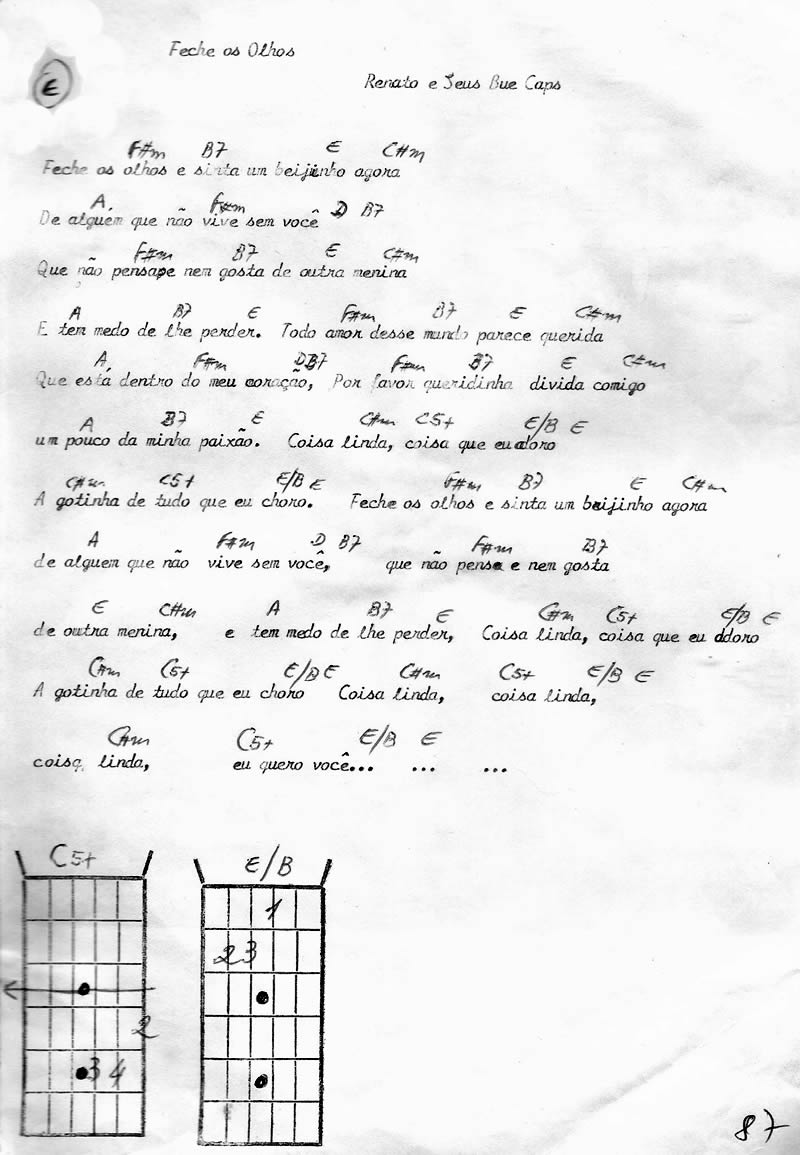 Feche os Olhos
E
Renato e Seus Bue Caps
F#m B7 E C#m
Feche os olhos e sinta um beijinho agora
A F#m D B7
De alguém que não vive sem você
F#m B7 E C#m
Que não pensa e nem gosta de outra menina
A B7 E F#m B7 E C#m
E tem medo de lhe perder. Todo amor desse mundo parece querida
A F#m D B7 F#m B7 E C#m
Que está dentro do meu coração, Por favor queridinha divida comigo
A B7 E C#m C5+ E/B E
um pouco da minha paixão. Coisa linda, coisa que eu adoro
C#m C5+ E/B E F#m B7 E C#m
A gotinha de tudo que eu choro. Feche os olhos e sinta um beijinho agora
A F#m D B7 F#m B7
de alguem que não vive sem você, que não pensa e nem gosta
E C#m A B7 E C#m C5+ E/B E
de outra menina, e tem medo de lhe perder, Coisa linda, coisa que eu adoro
C#m C5+ E/B E C#m C5+ E/B E
A gotinha de tudo que eu choro Coisa linda, coisa linda,
C#m C5+ E/B E
coisa, linda, eu quero você... ... ...
C5+ E/B
1
23
2
34
87